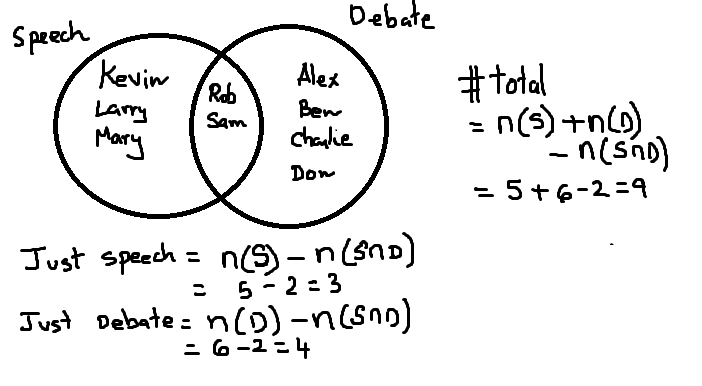 Speech
Debate
Kevin
Larry
Mary
Rob
Sam
Alex
Ben
Charlie
Don
# total
= n(S) + n(D)
- n(S∩D)
= 5 + 6 - 2 = 9
Just speech = n(S) - n(S∩D)
= 5 - 2 = 3
Just Debate = n(D) - n(S∩D)
= 6 - 2 = 4